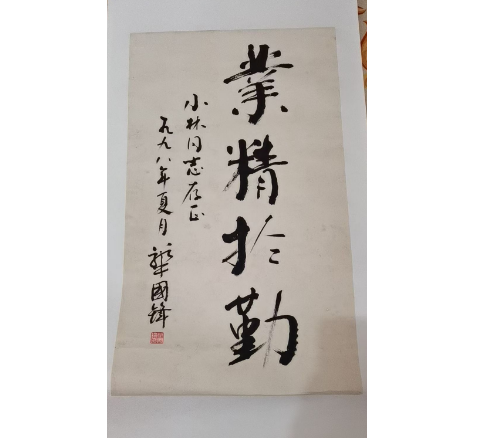 業精於勤
小林同志存正
一九九八年夏月 國鋒